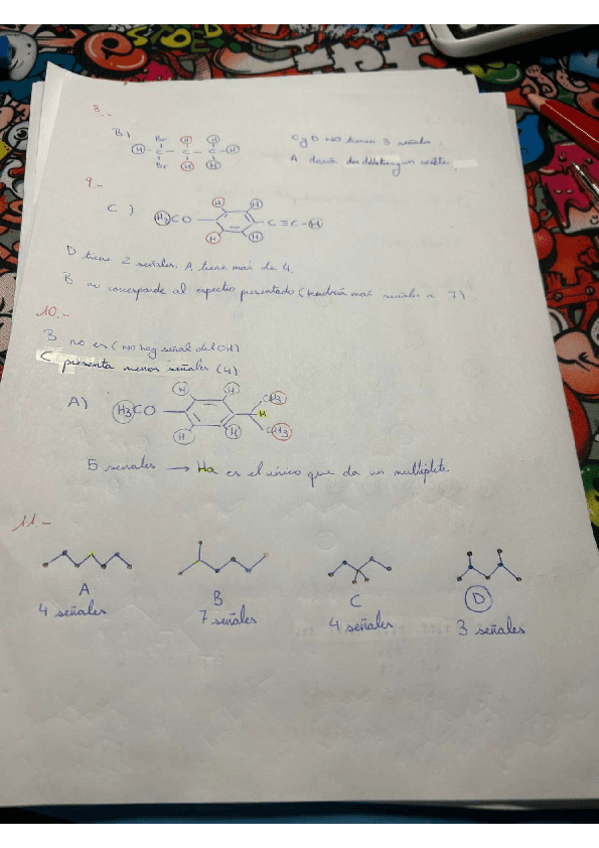 8.-
B)
Br H H
H - C - C - C - H
Br H H
C y D NO tienen 3 señales.
A daría dos
9.-
C) H3CO H H H H C≡C-H
D tiene 2 señales. A tiene más de 4.
B no corresponde al espectro presentado (tendría más señales a 7)
10.-
B no es (NO hay señal del OH)
C presenta menos señales (4)
A) H3CO H H H H H CH3 CH3
5 señales → Ha es el único que da un multiplete.
11.-
A B C D
4 señales 7 señales 4 señales 3 señales